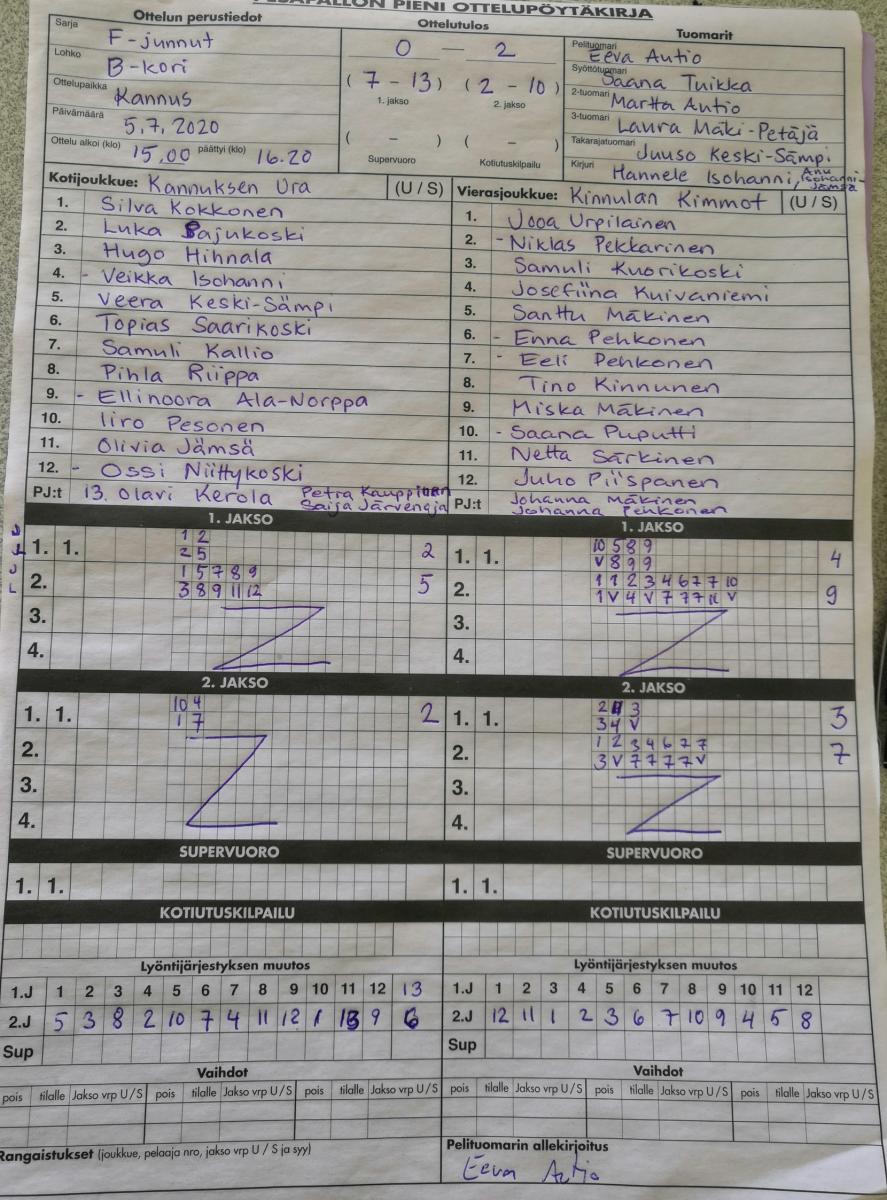 PESÄPALLON PIENI OTTELUPÖYTÄKIRJA
Ottelun perustiedot
Sarja F-junnut
Lohko B-kori
Ottelupaikka Kannus
Päivämäärä 5.7.2020
Ottelu alkoi (klo) 15.00 päättyi (klo) 16.20
Ottelutulos
0 — 2
(7 - 13) (2 - 10)
1. jakso 2. jakso
( - ) ( - )
Supervuoro Kotiutuskilpailu
Tuomarit
Pelituomari Eeva Autio
Syöttötuomari Saana Tuikka
2-tuomari Martta Autio
3-tuomari Laura Mäki-Petäjä
Takarajatuomari Juuso Keski-Sämpi
Kirjuri Hannele Isohanni, Anu Isohanni-Jämsä
Kotijoukkue: Kannuksen Ura (U / S)
1. Silva Kokkonen
2. Luka Sajukoski
3. Hugo Hihnala
4. - Veikka Isohanni
5. Veera Keski-Sämpi
6. Topias Saarikoski
7. Samuli Kallio
8. Pihla Riippa
9. - Ellinoora Ala-Norppa
10. Iiro Pesonen
11. Olivia Jämsä
12. - Ossi Niittykoski
PJ:t 13. Olavi Kerola Petra Kauppinen
Saija Järvenoja
Vierasjoukkue: Kinnulan Kimmot (U / S)
1. Jooa Urpilainen
2. - Niklas Pekkarinen
3. Samuli Kuorikoski
4. Josefiina Kuivaniemi
5. Santtu Mäkinen
6. - Enna Pehkonen
7. - Eeli Pehkonen
8. Tino Kinnunen
9. Miska Mäkinen
10. - Saana Puputti
11. Netta Särkinen
12. Juho Piispanen
PJ:t Johanna Mäkinen
Johanna Pehkonen
1. JAKSO
1. 1. 1 2
2 5 2
2. 1 5 7 8 9
3 8 9 11 12 5
3.
4.
1. JAKSO
1. 1. 10 5 8 9
V 8 9 9 4
2. 1 1 2 3 4 6 7 7 10
1 V 4 V 7 7 7 11 V 9
3.
4.
2. JAKSO
1. 1. 10 4
1 7 2
2.
3.
4.
2. JAKSO
1. 1. 2 3
3 4 V 3
2. 1 2 3 4 6 7 7
3 V 7 7 7 7 V 7
3.
4.
SUPERVUORO
1. 1.
SUPERVUORO
1. 1.
KOTIUTUSKILPAILU
KOTIUTUSKILPAILU
Lyöntijärjestyksen muutos
1.J 1 2 3 4 5 6 7 8 9 10 11 12 13
2.J 5 3 8 2 10 7 4 11 12 1 13 9 6
Sup
Lyöntijärjestyksen muutos
1.J 1 2 3 4 5 6 7 8 9 10 11 12
2.J 12 11 1 2 3 6 7 10 9 4 5 8
Sup
Vaihdot
pois tilalle Jakso vrp U/S pois tilalle Jakso vrp U/S pois tilalle Jakso vrp U/S
Vaihdot
pois tilalle Jakso vrp U/S pois tilalle Jakso vrp U/S pois tilalle Jakso vrp U/S
Rangaistukset (joukkue, pelaaja nro, jakso vrp U / S ja syy)
Pelituomarin allekirjoitus
Eeva Autio